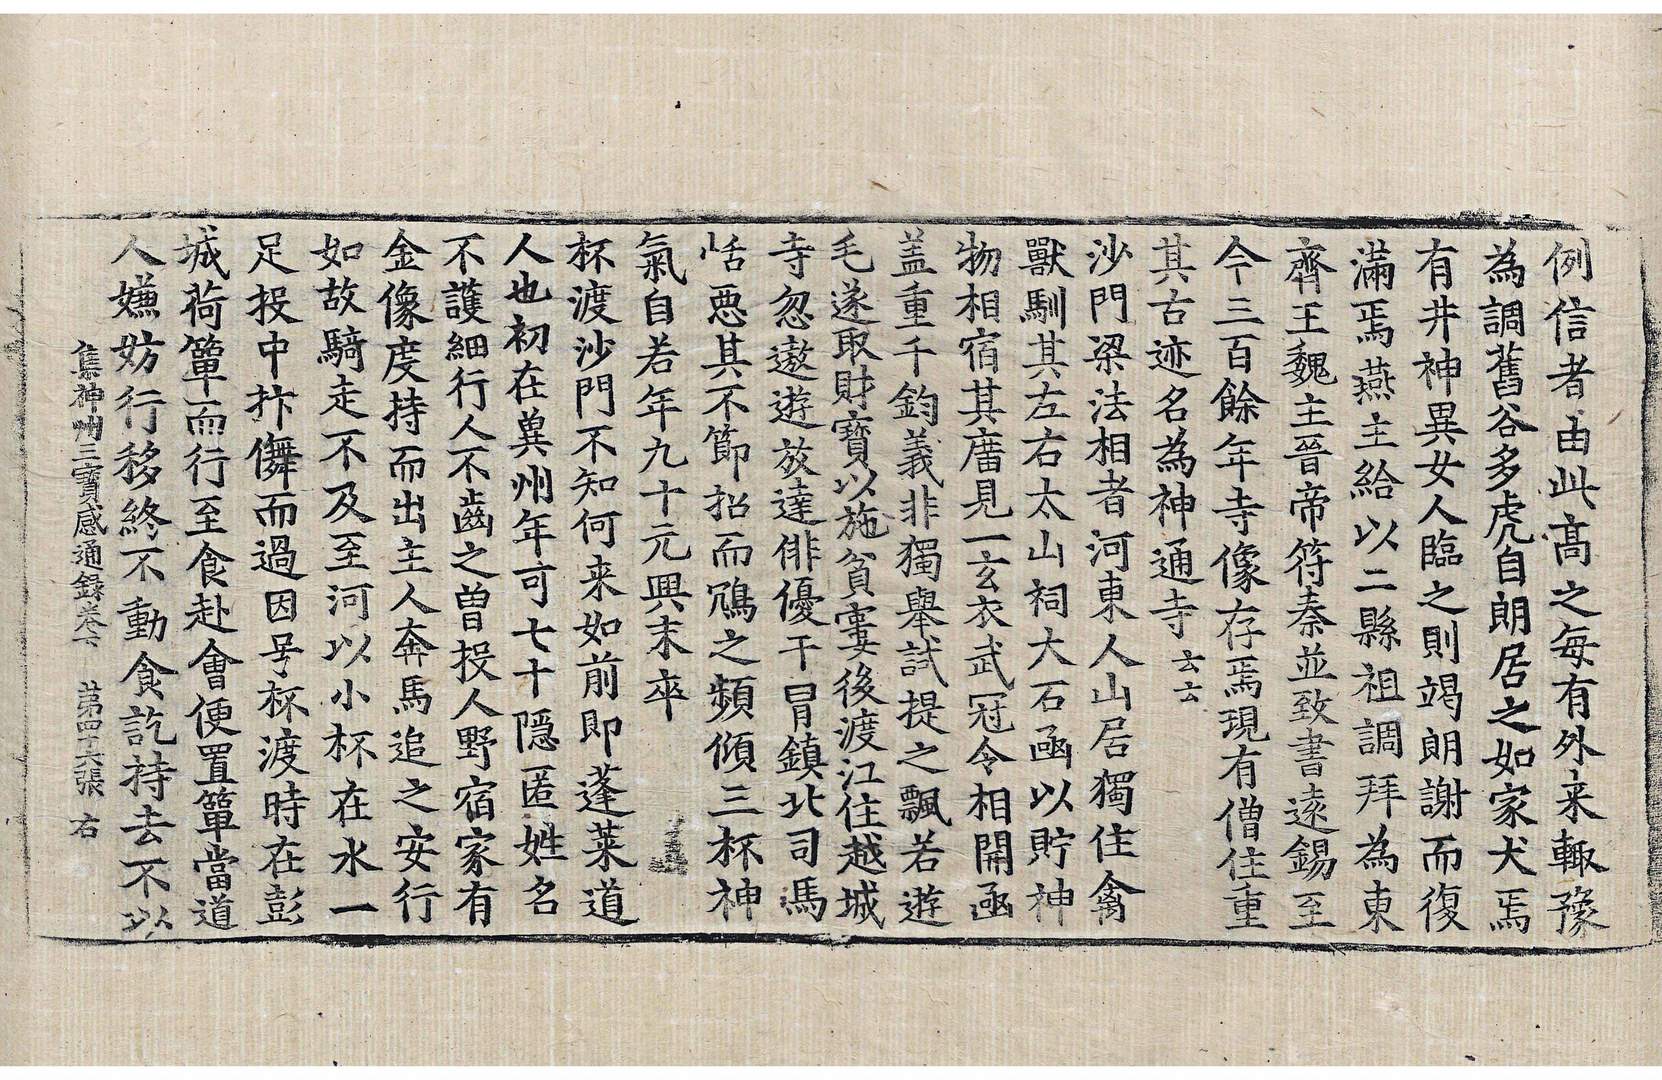 例信者由此高之每有外来輙豫
為調舊谷多虎自朗居之如家犬焉
有井神異女人臨之則竭朗謝而復
滿焉燕主給以二縣祖調拜為東
齊王魏主晉帝符秦並致書遠錫至
今三百餘年寺像存焉現有僧住重
其古迹名為神通寺云云
沙門梁法相者河東人山居獨住禽
獸馴其左右太山祠大石函以貯神
物相宿其廟見一玄衣武冠令相開函
盖重千鈞義非獨舉試提之飄若遊
毛遂取財寶以施貧寠後渡江住越城
寺忽遨遊放達俳優干冐鎮北司馮
恬惡其不節招而鴆之頻傾三杯神
氣自若年九十元興末卒
杯渡沙門不知何来如前即蓬莱道
人也初在兾州年可七十隱匿姓名
不護細行人不齒之曽投人野宿家有
金像度持而出主人奔馬追之安行
如故騎走不及至河以小杯在水一
足投中抃儛而過因号杯渡時在彭
城荷箄而行至食赴會便置箄當道
人嫌妨行移終不動食訖持去不以
集神州三寶感通録卷下 第四十六張 右